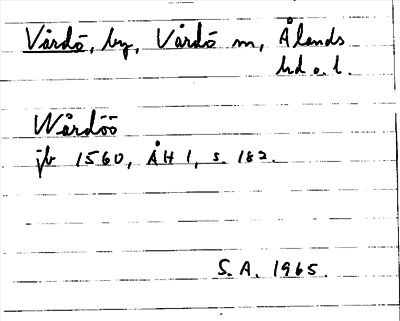 Vårdö, by, Vårdö m, Ålands
hd o. l.
Wårdöö
jb 1560, ÅH 1, s. 182.
S.A. 1965.